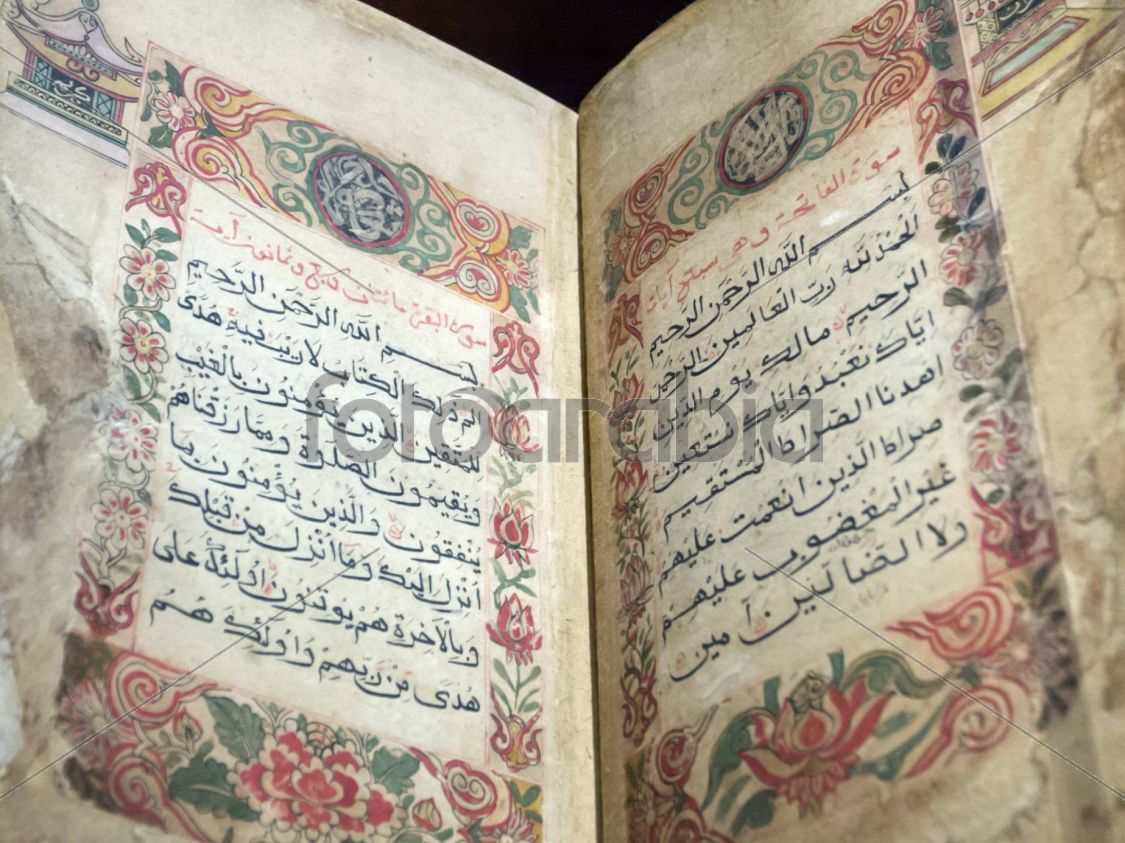 سورة الفاتحة وهي سبع آيات
بسم الله الرحمن الرحيم
الحمد لله رب العالمين الرحمن
الرحيم مالك يوم الدين
اياك نعبد واياك نستعين
اهدنا الصراط المستقيم
صراط الذين انعمت عليهم
غير المغضوب عليهم
ولا الضالين آمين
سورة البقرة مائتان وسبع وثمانون آية
بسم الله الرحمن الرحيم
الم ذلك الكتاب لا ريب فيه هدى
للمتقين الذين يؤمنون بالغيب
ويقيمون الصلوة ومما رزقناهم
ينفقون والذين يؤمنون بما
انزل اليك وما انزل من قبلك
وبالآخرة هم يوقنون اولئك على
هدى من ربهم واولئك هم
fotoarabia